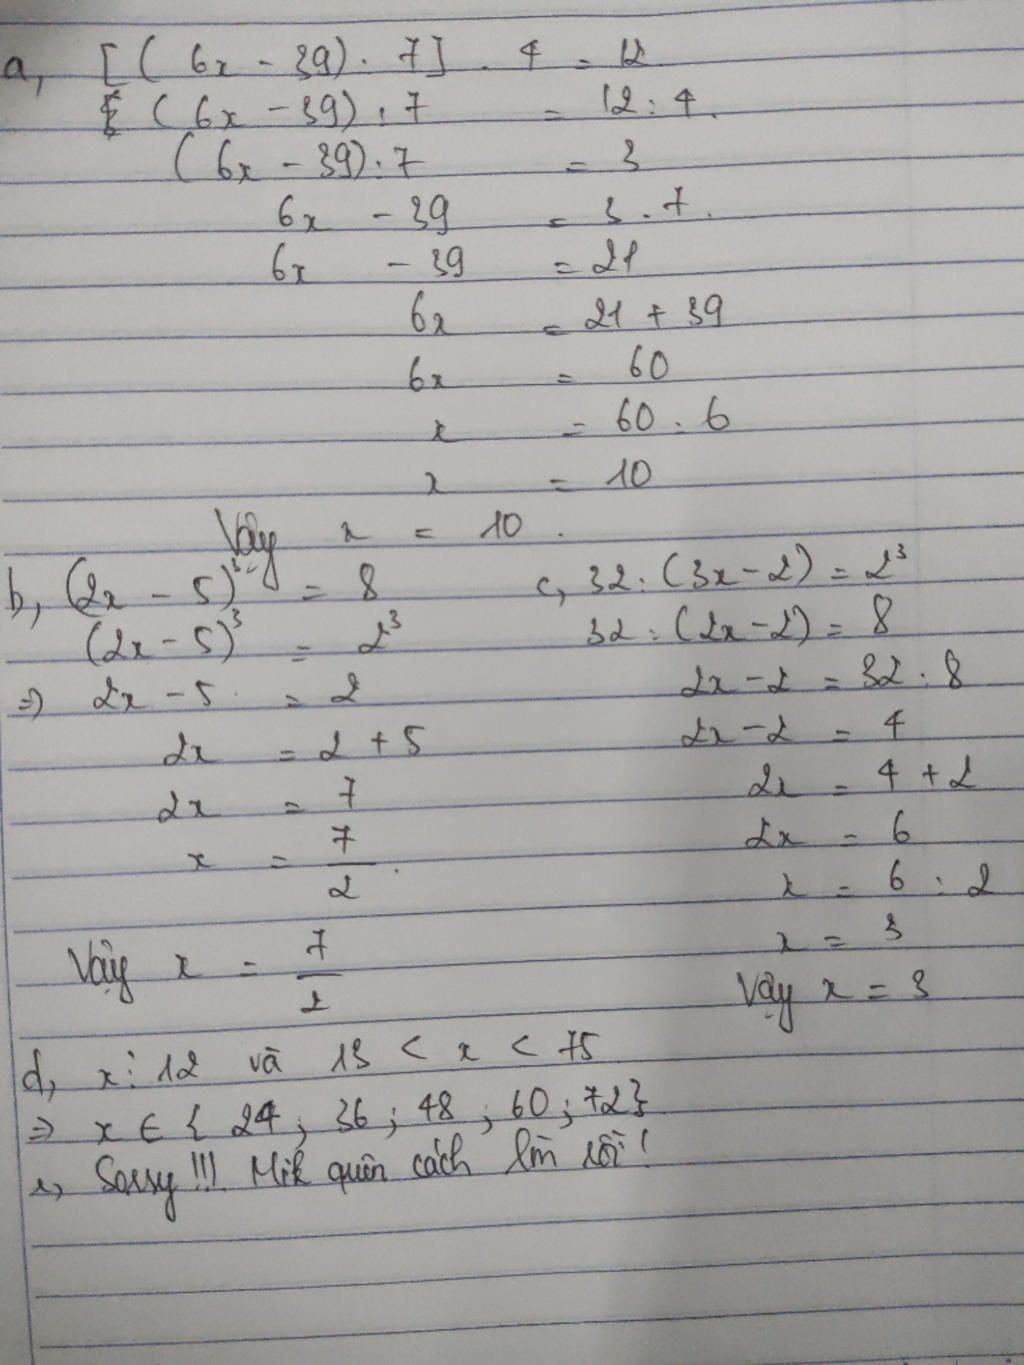 a, [( 6x - 39) : 7] . 4 = 12
( 6x - 39) : 7 = 12 : 4.
( 6x - 39) : 7 = 3
6x - 39 = 3 . 7.
6x - 39 = 21
6x = 21 + 39
6x = 60
x = 60 : 6
x = 10
Vậy x = 10 .
b, (2x - 5)³ = 8
(2x - 5)³ = 2³
=> 2x - 5 = 2
2x = 2 + 5
2x = 7
x = 7/2 .
Vậy x = 7/2
c, 32 : (3x - 2) = 2³
32 : (2x - 2) = 8
2x - 2 = 32 : 8
2x - 2 = 4
2x = 4 + 2
2x = 6
x = 6 : 2
x = 3
Vậy x = 3
d, x ⋮ 12 và 13 < x < 75
=> x ∈ { 24 ; 36 ; 48 ; 60 ; 72}
e, Sorry !!! Mik quên cách làm rồi !